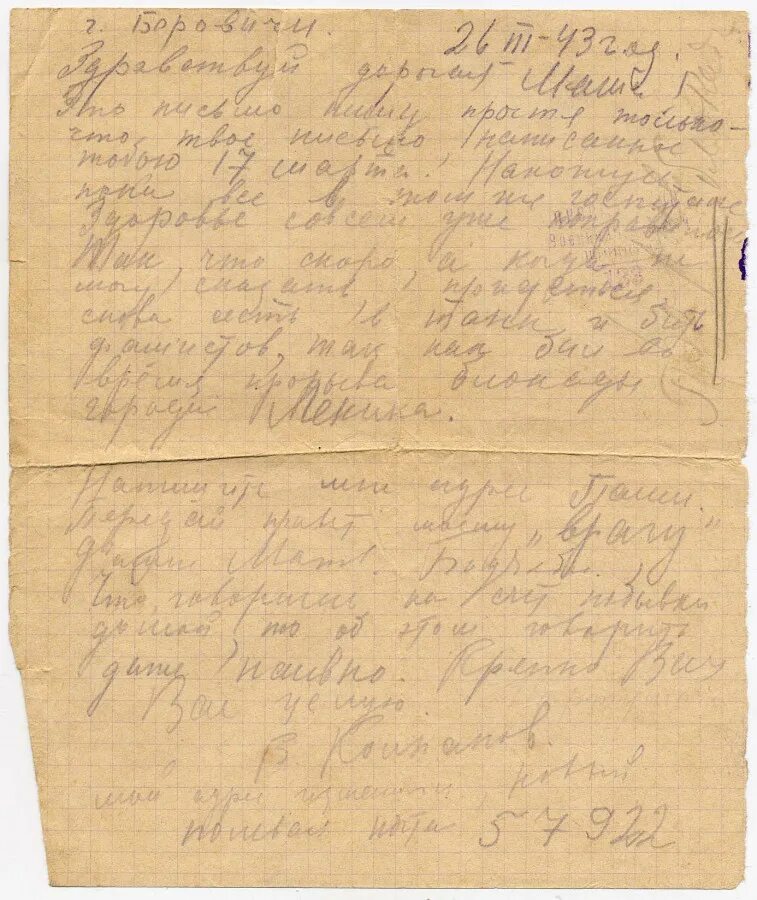 г. Боровичи.
26 III-43 год.
Здравствуй дорогая Маша!
Это письмо пишу просто только
что твое письмо написанное
тобою 17 марта. Нахожусь
пока все в том же госпитале
Здоровье совсем уже
Так, что скоро, а когда не
могу сказать, придеться
снова сесть в танк и бить
фашистов, так как бил во
время прорыва блокады
города Ленина.
Напишите мне адрес Паши.
Передай привет моему „врагу"
Что, говоришь на счет побывки
домой, то об этом говорить
даже наивно. Крепко Всех
Вас целую.
В. Колпаков.
мой адрес новый
полевая почта 57922